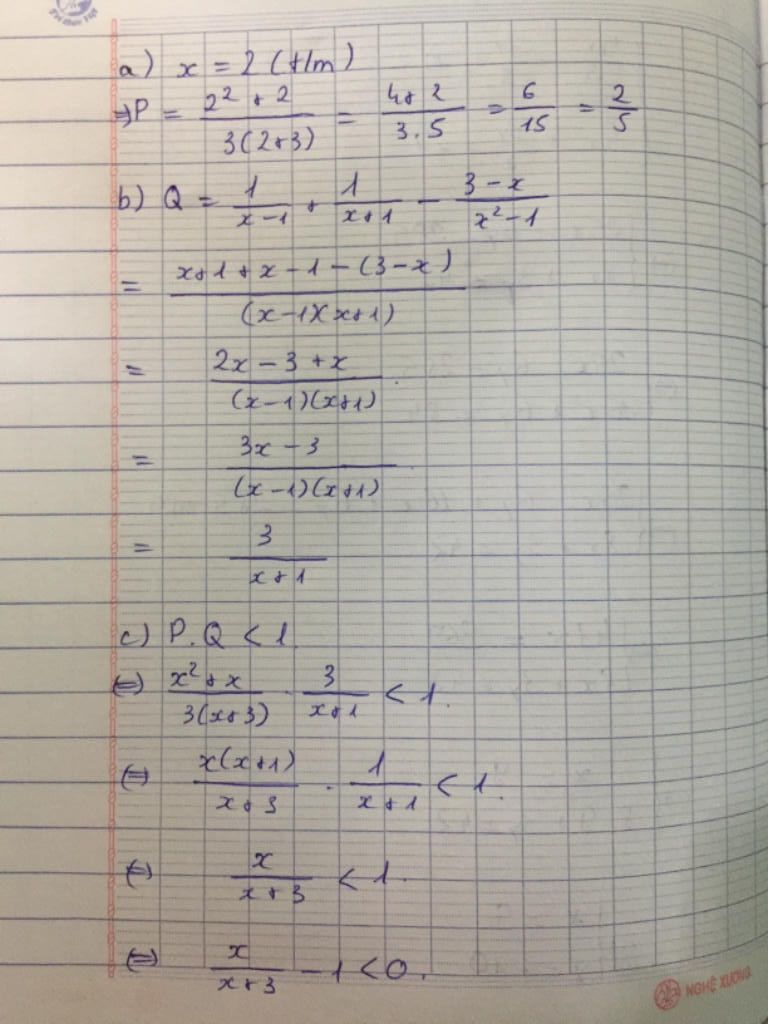 a) x = 2 (t/m)
⇒ P = (2² + 2)/(3(2+3)) = (4+2)/(3.5) = 6/15 = 2/5
b) Q = 1/(x-1) + 1/(x+1) - (3-x)/(x²-1)
= (x+1+x-1-(3-x))/((x-1)(x+1))
= (2x-3+x)/((x-1)(x+1))
= (3x-3)/((x-1)(x+1))
= 3/(x+1)
c) P.Q < 1
⇔ (x²+x)/(3(x+3)) . 3/(x+1) < 1.
⇔ (x(x+1))/(x+3) . 1/(x+1) < 1.
⇔ x/(x+3) < 1.
⇔ x/(x+3) - 1 < 0.
NGHỆ XƯƠNG